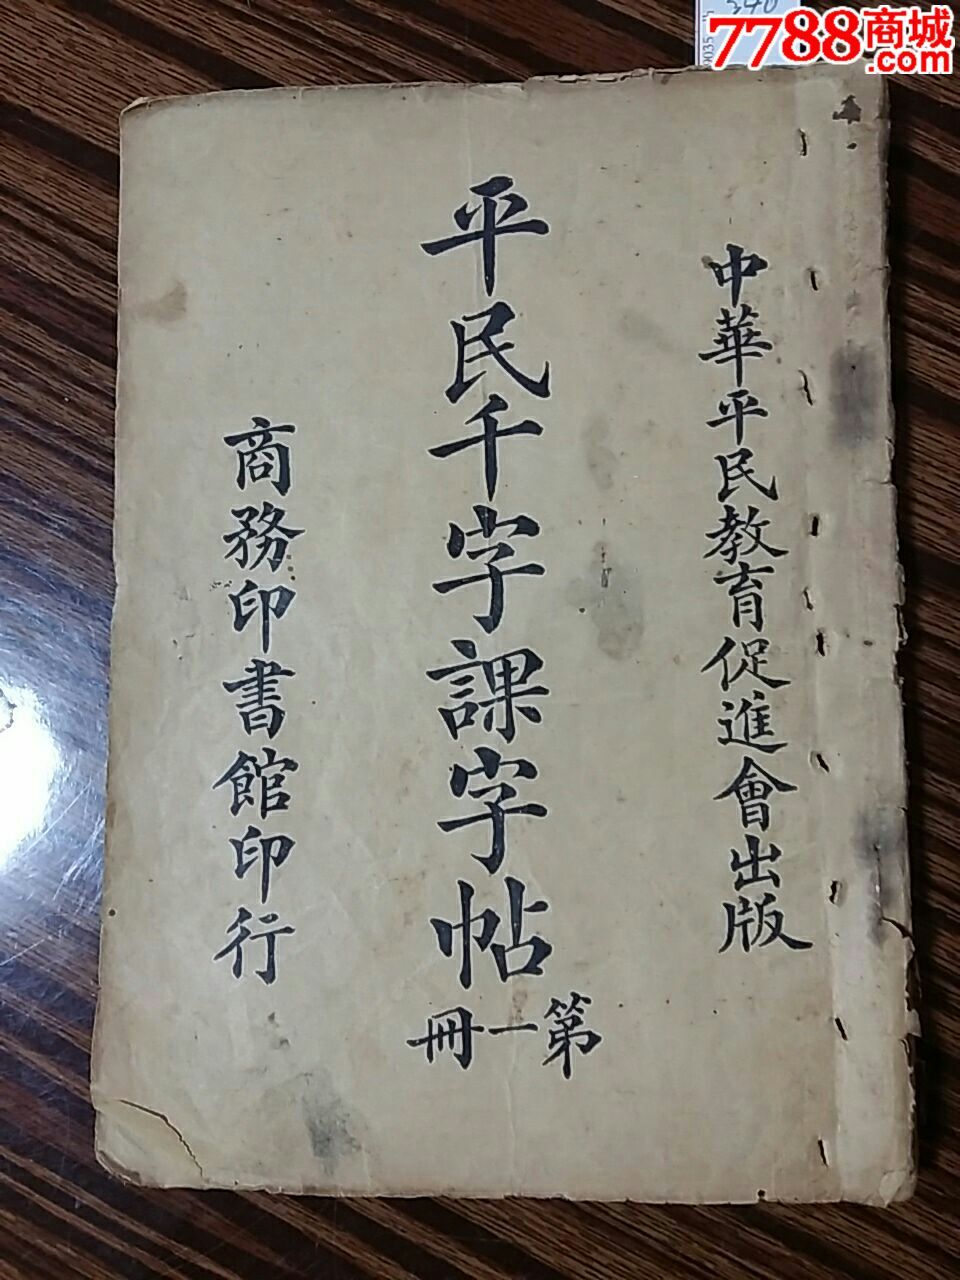 中華平民教育促進會出版
平民千字課字帖
第一冊
商務印書館印行
7788商城
.com